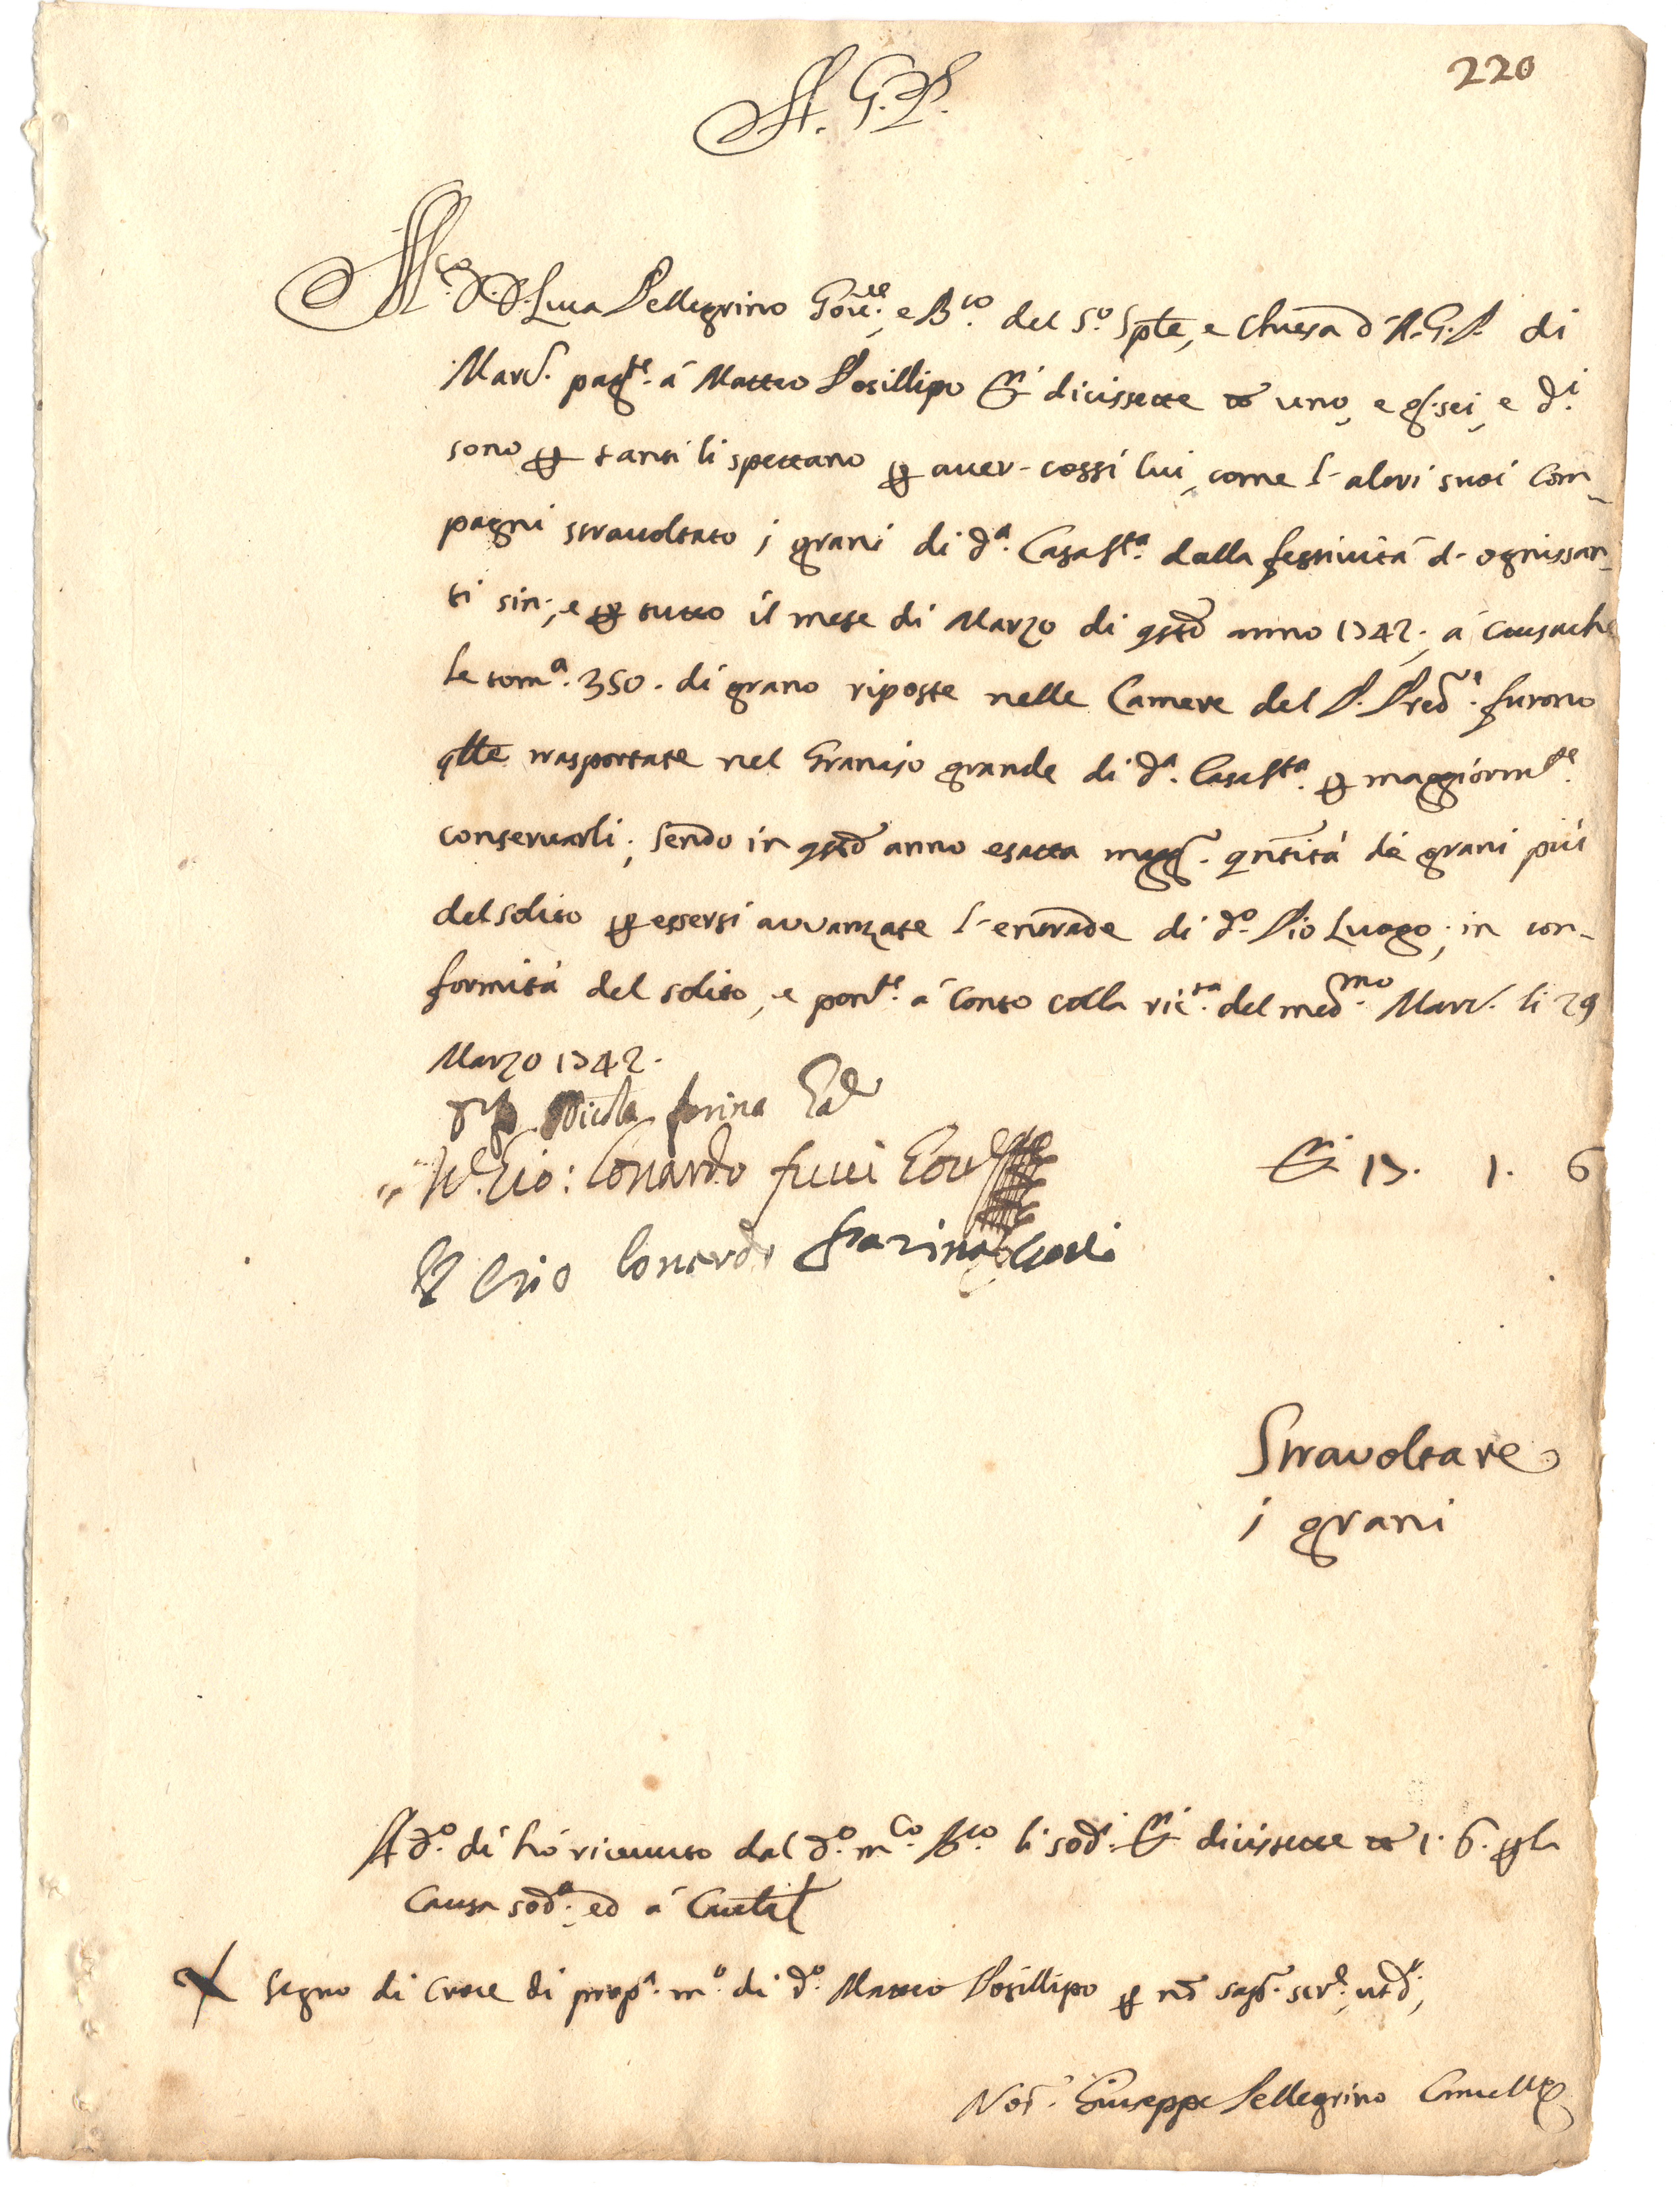 220
A. G. P.
M.co D. D. Luca Pellegrino Gov.re, e B.co del S.o Spte, e Chiesa d'A.G.P. di
Mard. pag.te á Matteo Posillipo D.ti dicissette tt uno, e g.sei, e d.i
sono p tanti li spettano p aver-cossí lui, come l-altri suoi Com-
pagni stravoltato i grani di d.a Casa S.ta dalla festivitá d-ognissan-
ti sin-, e p tutto il mese di Marzo di qsto anno 1742. á causache
le tom.a 350. di grano riposte nelle Camere del P. Pred.re furono
qlle trasportate nel Granajo grande di d.a Casa S.ta p maggiorm.te
conservarli; sendo in qsto anno esatta magg. qntitá de grani piú
del solito p essersi avvanzate l-entrade di d.o Pio Luogo; in con-
formitá del solito, e pont.e á conto colla ric.ta del med.mo Mard. li 29
Marzo 1742.
Nicola farina
Gio: Lonardo fucci
D.ti 17. 1. 6
Gio Lonardo farina
Stravoltare
i grani
A d.o dí hó ricevuto dal d.o m.co B.co li sod.i D.ti dicissette tt 1. 6. p la
Causa sod.a, ed á Cautel
Segno di Croce di prop.a m.o di d.o Matteo Posillipo p nō sap. scr.e, ut d.r;
Not.r Giuseppe Pellegrino Canc.re